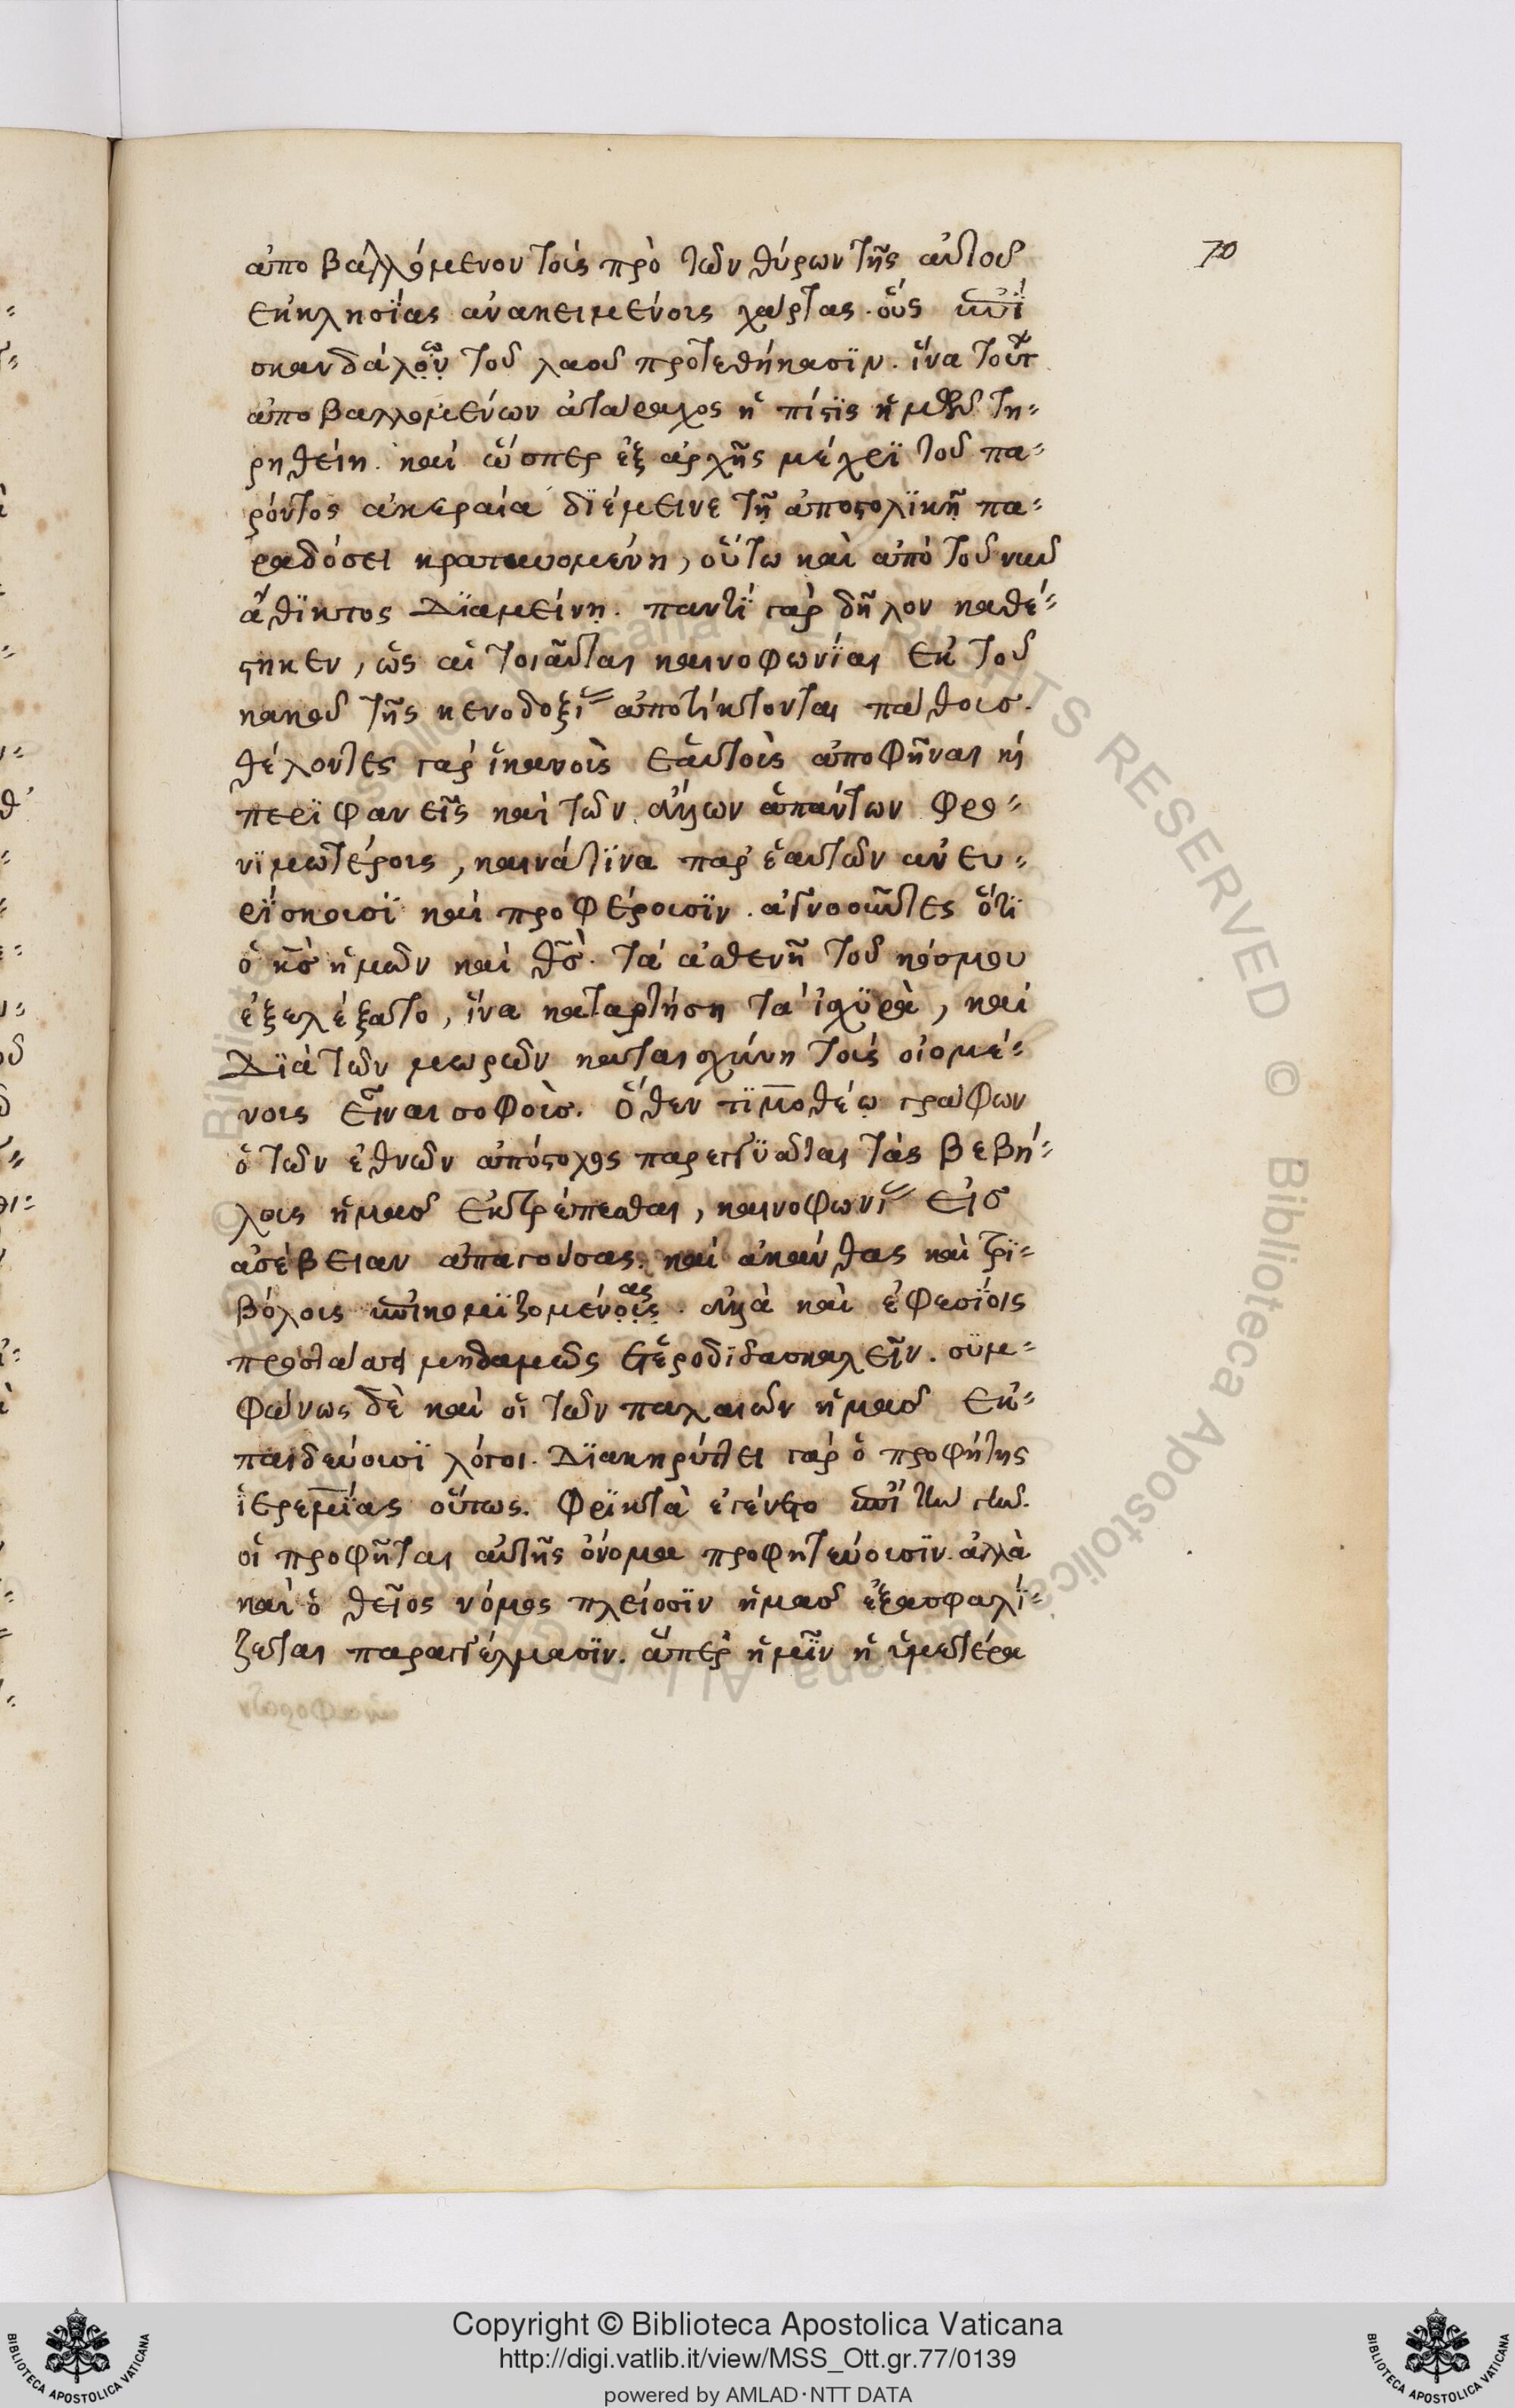 70
ἀποβαλλόμενον τοὺς πρὸ τῶν θύρων τῆς αὐτοῦ
ἐκκλησΐας ἀνακειμένους χάρτας· οὓς ἐπῒ
σκανδάλων τοῦ λαοῦ προτεθήκασϊν. ἵνα τούτ
ἀποβαλλομένων ἀτάραχος ἡ πίστϊς ἡμῶν τη-
ρηθείη. καὶ ὥσπερ ἐξ ἀρχῆς μέχρϊ τοῦ πα-
ρόντος ἀκεραία δϊέμεινε τῇ ἀποστολϊκῇ πα-
ραδόσει κρατυνομένη, οὕτω καὶ ἀπὸ τοῦ νῦν
ἄθϊκτος Δϊαμείνῃ. παντῒ γὰρ δῆλον καθέ-
στηκεν, ὡς αἱ τοιαῦται καινοφωνΐαι ἐκ τοῦ
κακοῦ τῆς κενοδοξί ἀποτίκτονται πάθους.
θέλοντες γὰρ ἱκανοὺς ἑαυτοὺς ἀποφῆναι κὶ
περϊφανεῖς καὶ τῶν ἄλλων ἁπάντων φρο-
νϊμωτέρους, καινά τϊνα παρ' ἑαυτῶν ἀνευ-
ρΐσκουσϊ καὶ προφέρουσϊν. ἀγνοοῦντες ὅτϊ
ὁ κσ ἡμῶν καὶ θσ. τὰ ἀσθενῆ τοῦ κόσμου
ἐξελέξατο, ἵνα καταρτήση τὰ ἰσχϋρὰ, καὶ
Δϊὰ τῶν μωρῶν καταισχύνη τοὺς οἰομέ-
νους εἶναι σοφούσ. ὅθεν τϊμοθέῳ γράφων
ὁ τῶν ἐθνῶν ἀπόστολος παρεγγϋᾶται τὰς βεβή-
λους ἡμασ ἐκτρέπεσθαι, καινοφωνί εἰσ
ἀσέβειαν ἀπαγούσας. καὶ ἀκάνθας καὶ τρϊ-
βόλους ἐπικομϊζομένους ας. ἀλλὰ καὶ ἐφεσΐοις
προστάσσει μηδαμῶς ἑτεροδϊδασκαλεῖν. σϋμ-
φώνως δὲ καὶ οἱ τῶν παλαιῶν ἡμασ ἐκ-
παιδεύουσϊ λόγοι. Δϊακηρύττει γὰρ ὁ προφήτης
ἱερεμΐας οὕτως. φρϊκτὰ ἐγένετο ἐπῒ τὴν γῆν.
οἱ προφῆται αὐτῆς ὄνομα προφητεύουσϊν. ἀλλὰ
καὶ ὁ θεῖος νόμος πλείοσϊν ἡμασ ἐξασφαλΐ-
ζεται παραγγέλμασϊν. ἅπερ ἡμῖν ἡ ὑμετέρα
Copyright © Biblioteca Apostolica Vaticana
http://digi.vatlib.it/view/MSS_Ott.gr.77/0139
powered by AMLAD·NTT DATA